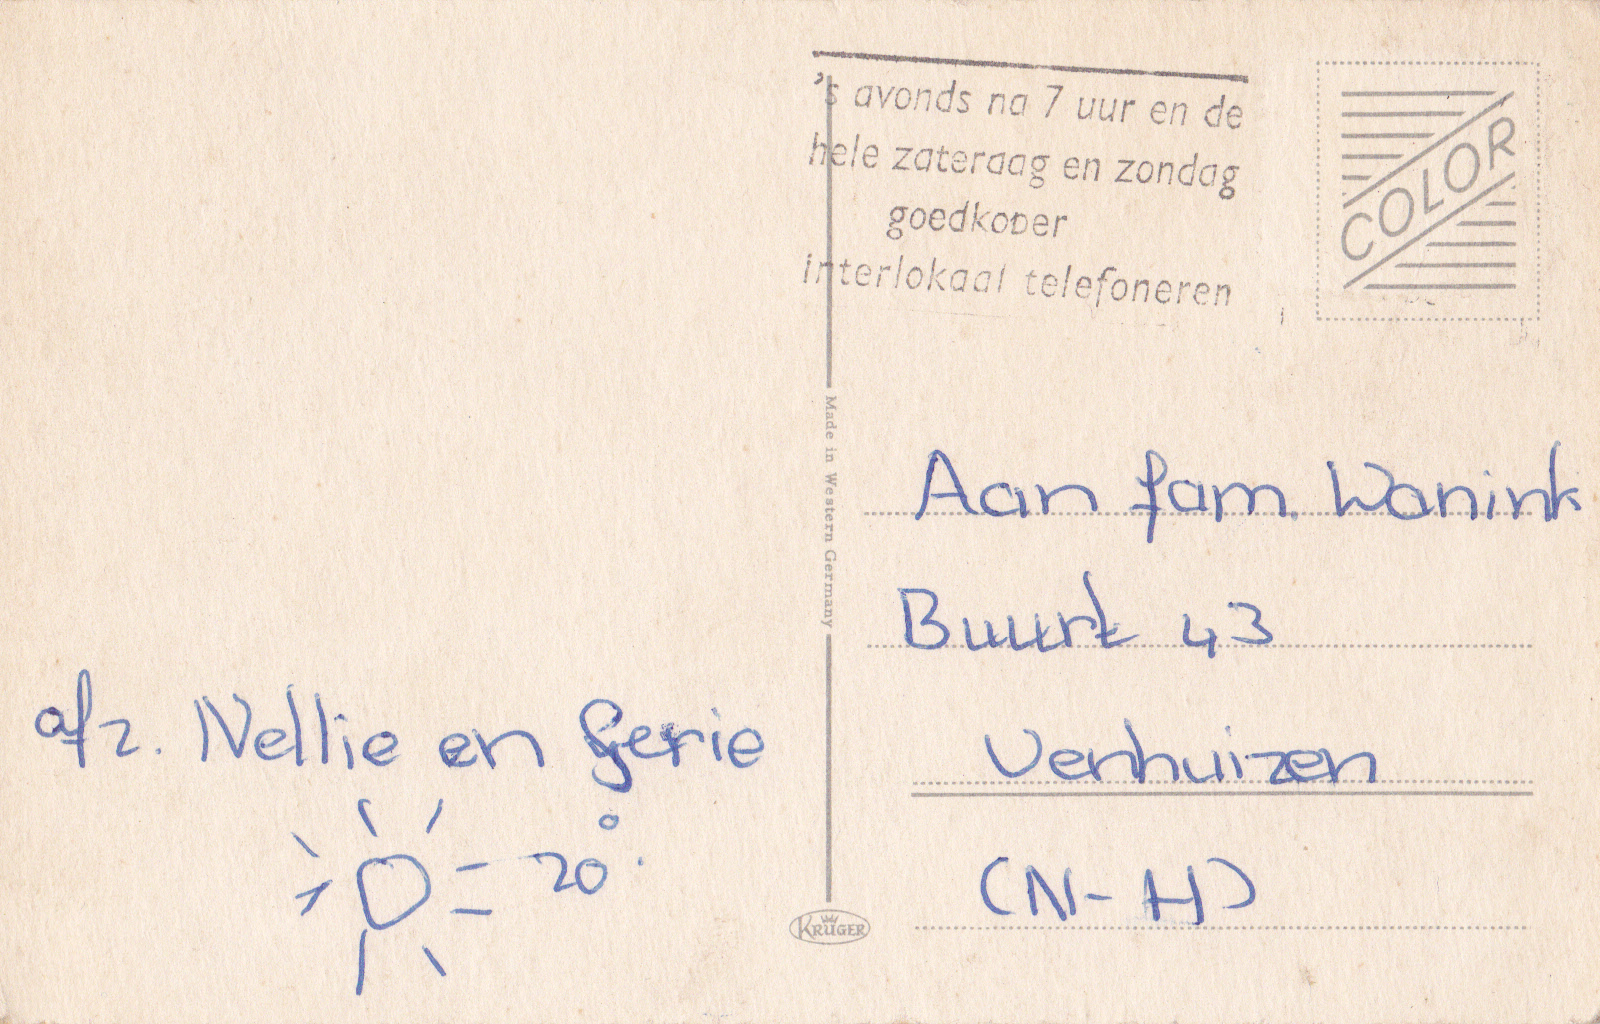 's avonds na 7 uur en de
hele zaterdag en zondag
goedkoper
interlokaal telefoneren
COLOR
Made in Western Germany
Aan fam. Wanink
Buurt 43
Venhuizen
(N-H)
afz. Nellie en Gerie
20°
KRÜGER